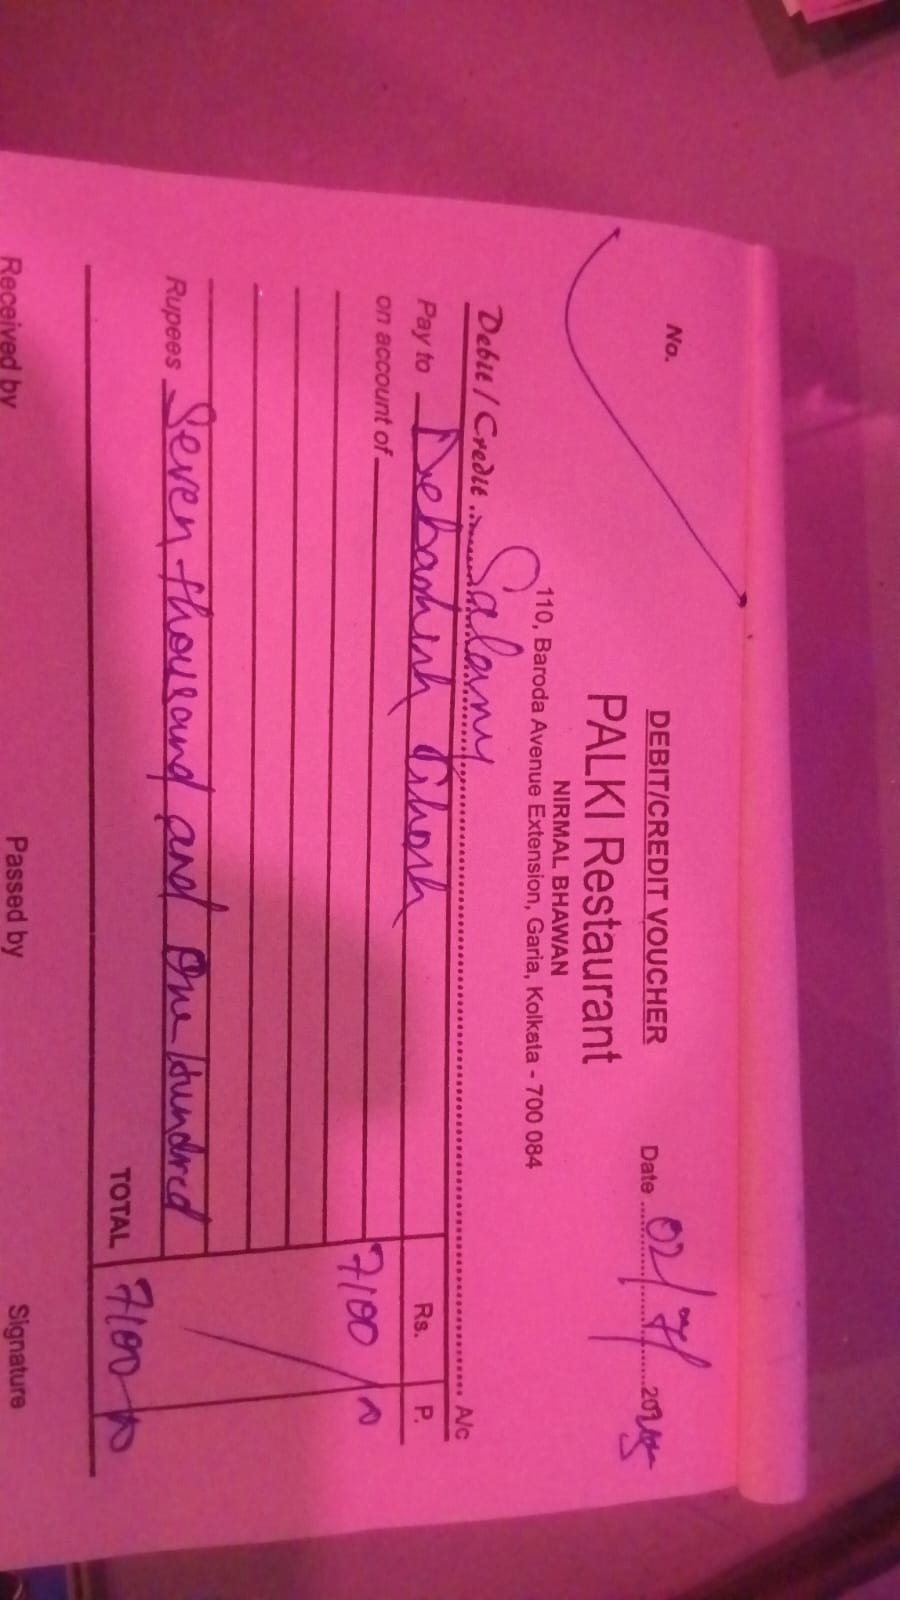 No.
DEBIT/CREDIT VOUCHER
Date 02/7/
PALKI Restaurant
NIRMAL BHAWAN
110, Baroda Avenue Extension, Garia, Kolkata - 700 084
Debit / Credit Salary A/c
Pay to Debashish Ghosh Rs. P.
on account of 7100
Rupees Seven thousand and One hundred
TOTAL 7100
Received by Passed by Signature